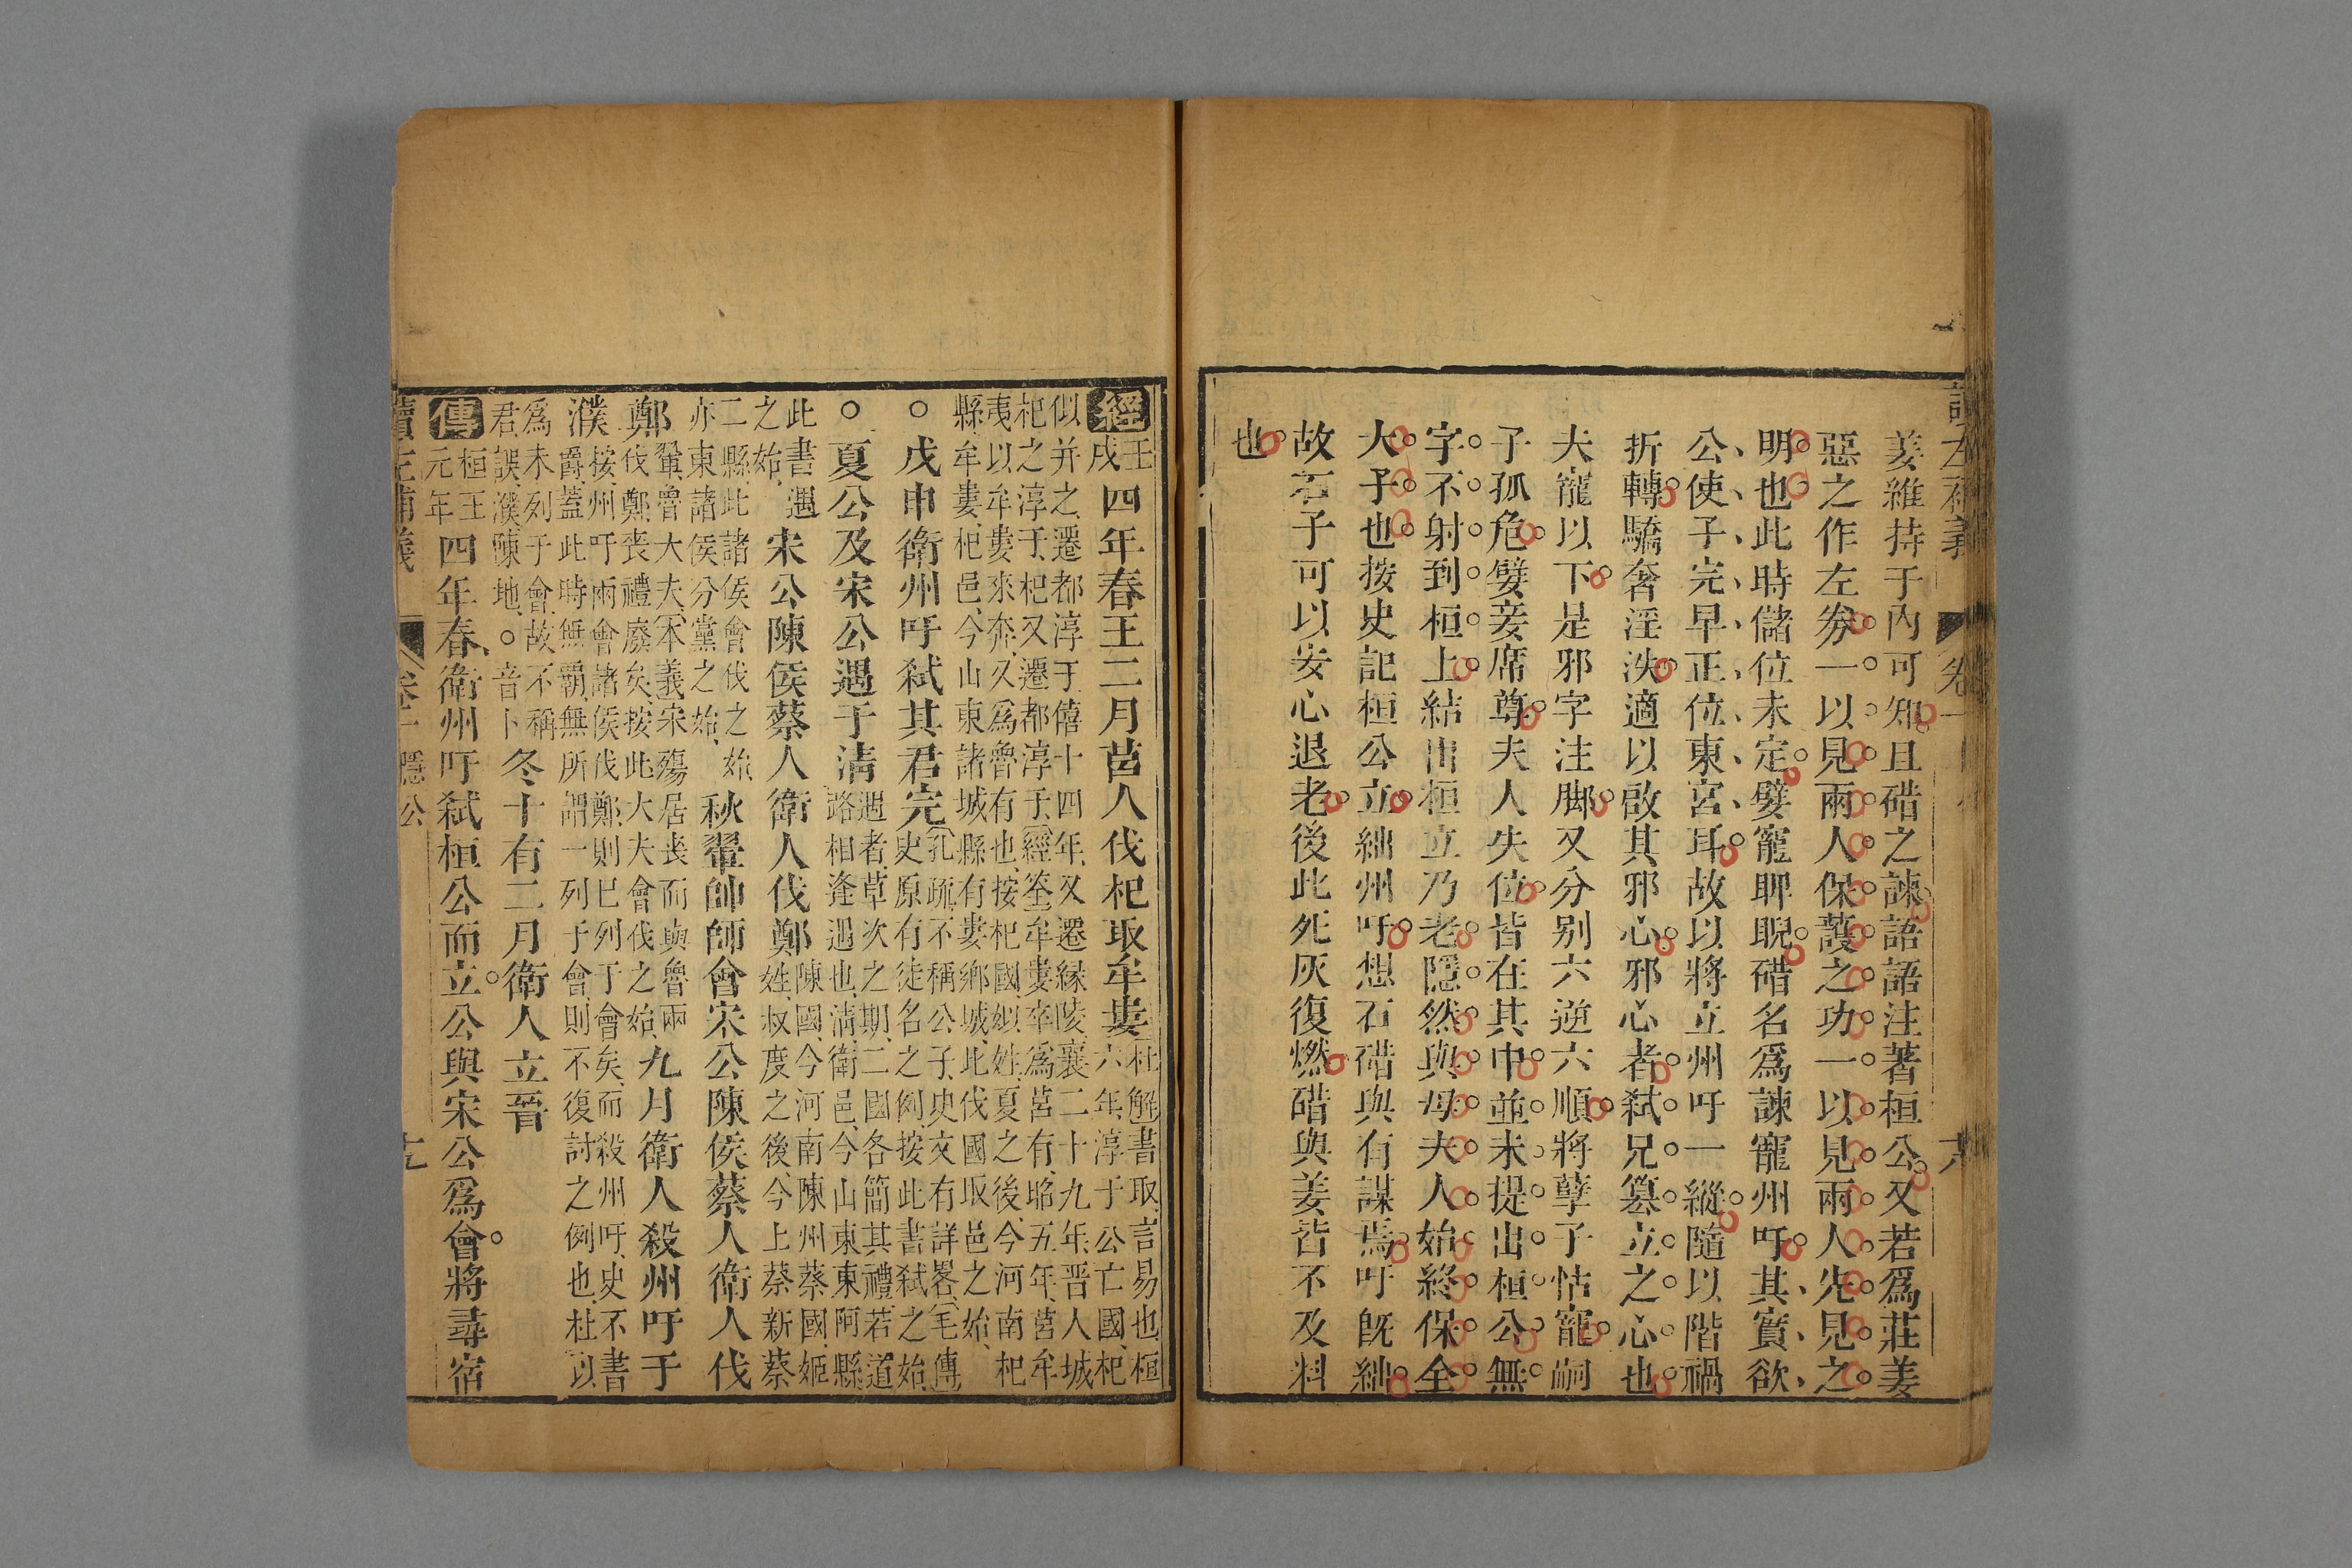 姜維持于內可知且碏之諫語語注著桓公又若爲莊姜
惡之作左劵一以見兩人保護之功一以見兩人先見之
明也此時儲位未定嬖寵睥睨碏名爲諫寵州吁其實欲
公使子完早正位東宮耳故以將立州吁一縱隨以階禍
折轉驕奢淫泆適以啟其邪心邪心者弒兄篡立之心也
夫寵以下是邪字注脚又分别六逆六順將孽子怙寵嗣
子孤危嬖妾席尊夫人失位皆在其中並未提出桓公無
字不射到桓上結出桓立乃老隱然與母夫人始終保全
大子也按史記桓公立絀州吁想石碏與有謀焉吁旣絀
故石子可以安心退老後此死灰復燃碏與姜皆不及料
也
讀左補義 卷一 六
經壬戌四年春王二月莒人伐杞取牟婁杜解書取言易也桓
六年淳于公亡國杞
似并之遷都淳于僖十四年又遷緣陵襄二十九年晋人城
杞之淳于杞又遷都淳于經筌牟婁卒爲莒有昭五年莒牟
夷以牟婁來奔又爲魯有也按杞國姒姓夏之後今河南杞
縣牟婁杞邑今山東諸城縣有婁鄉城此伐國取邑之始
○戊申衛州吁弒其君完孔疏不稱公子史文有詳畧毛傳
史原有徒名之例按此書弒之始
○夏公及宋公遇于淸遇者草次之期二國各簡其禮若道
路相逢遇也淸衛邑今山東東阿縣
此書遇
之始宋公陳侯蔡人衛人伐鄭陳國今河南陳州蔡國姬
姓叔度之後今上蔡新蔡
二縣此諸侯會伐之始
亦東諸侯分黨之始秋翬帥師會宋公陳侯蔡人衛人伐
鄭翬魯大夫本義宋殤居喪而與魯兩
伐鄭喪禮廢矣按此大夫會伐之始九月衛人殺州吁于
濮按州吁兩會諸侯伐鄭則已列于會矣而殺州吁史不書
爵蓋此時無覇無所謂一列于會則不復討之例也杜以
爲未列于會故不稱
君誤濮陳地○音卜冬十有二月衛人立晉
傳桓王元年四年春衛州吁弒桓公而立公與宋公爲會將尋宿
讀左補義 卷一 隱公